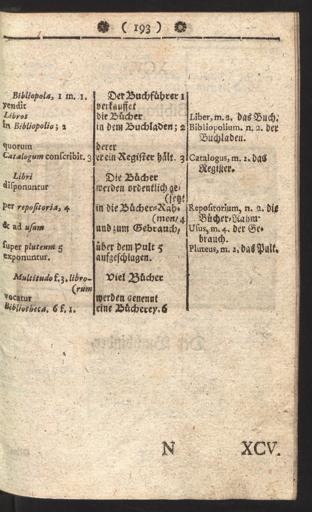 ( 193 )
Bibliopola, 1 m. 1.
vendit
Libros
in Bibliopolio; 2
quorum
Catalogum conscribit. 3
Libri
disponuntur
per repositoria, 4
& ad usum
super pluteum 5
exponuntur.
Multitudo f. 3. libro-
(rum
vocatur
Bibliotheca. 6 f. 1.
Der Buchführer 1
verkauffet
die Bücher
in dem Buchladen; 2
derer
er ein Register hält. 3
Die Bücher
werden ordentlich ge-
(setzt
in die Bücher-Rah-
(men/ 4
und zum Gebrauch,
über dem Pult 5
aufgeschlagen.
Viel Bücher
werden genennt
eine Bücherey. 6
Liber, m. 2. das Buch.
Bibliopolium. n. 2. der
Buchladen.
Catalogus, m. 2. das
Register.
Repositorium, n. 2. die
Bücher-Rahm.
Usus, m. 4. der Ge-
brauch.
Pluteus, m. 2. das Pult.
N XCV.